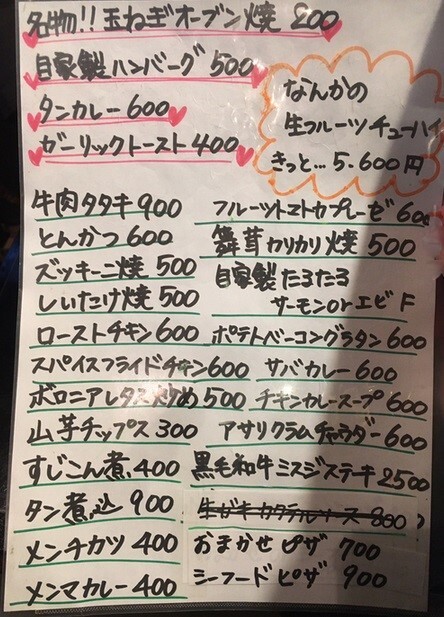 名物!! 玉ねぎオーブン焼 200
自家製ハンバーグ 500
タンカレー 600
ガーリックトースト 400
なんかの
生フルーツチューハイ
きっと…5.600円
牛肉タタキ 900
とんかつ 600
ズッキーニ焼 500
しいたけ焼 500
ローストチキン 600
スパイスフライドチキン 600
ボロニアレタス炒め 500
山芋チップス 300
すじこん煮 400
タン煮込 900
メンチカツ 400
メンマカレー 400
フルーツトマトカプレーゼ 600
舞茸カリカリ焼 500
自家製たるたる
サーモンorエビF
ポテトベーコングラタン 600
サバカレー 600
チキンカレースープ 600
アサリクラムチャウダー 600
黒毛和牛ミスジステーキ 2500
生ガキカクテルソース 800
おまかせピザ 700
シーフードピザ 900